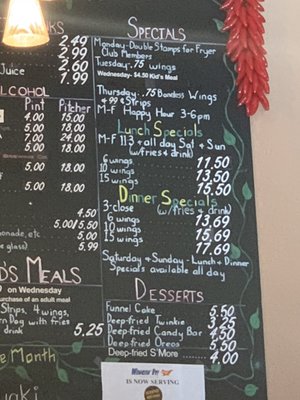 KS
2.49
2.99
Juice 2.69
7.99
ALCOHOL
Pint Pitcher
4.00 15.00
5.00 18.00
7.00 24.00
5.00 18.00
5.00 18.00
5.00 18.00
4.50
5.00/5.50
onade, etc. 5.00
e glass) 5.99
D'S MEALS
9 on Wednesday
purchase of an adult meal
Strips, 4 wings,
rn Dag with fries
drink 5.25
e Month
yaki
SPECIALS
Monday-Double Stamps for Fryer
Club Members
Tuesday-.75 wings
Wednesday- $4.50 Kid's Meal
Thursday .75 Boneless Wings
.99¢ Strips
M-F Happy Hour 3-6pm
Lunch Specials
M-F 11-3 + all day Sat + Sun
(w/fries & drink)
6 wings 11.50
10 wings 13.50
15 wings 15.50
Dinner Specials
3-close (w/fries + drink)
6 wings 13.69
10 wings 15.69
15 wings 17.69
Saturday & Sunday - Lunch & Dinner
Specials available all day
DESSERTS
Funnel Cake 5.50
Deep-fried Twinkie 3.25
Deep-fried Candy Bar 4.50
Deep-fried Oreos 5.50
Deep-fried S'More 4.00
IS NOW SERVING